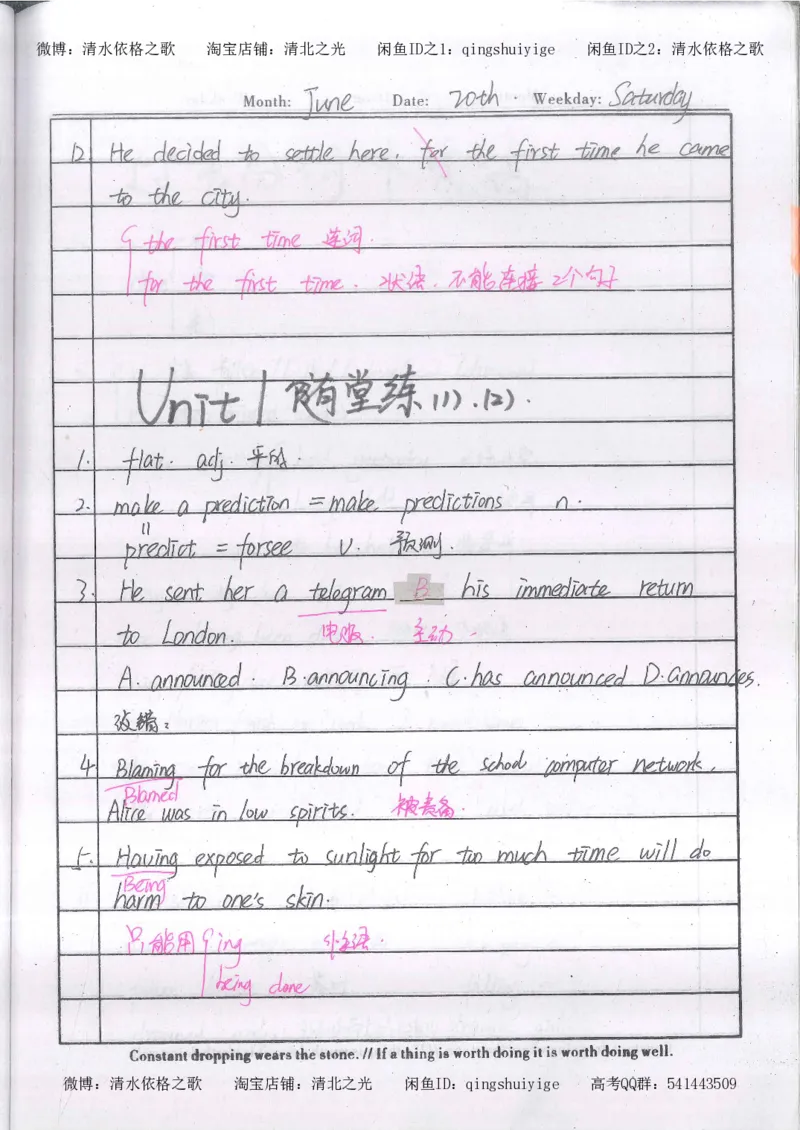 微博：清水依格之歌 淘宝店铺：清北之光 闲鱼ID之1：qingshuiyige 闲鱼ID之2：清水依格之歌
Month: June Date: 20th · Weekday: Saturday
12. He decided to settle here, for the first time he came
to the city.
{ the first time 连词.
for the first time. 状语. 不能连接2个句子
Unit 1 随堂练(1).(2).
1. flat. adj. 平的.
2. make a prediction = make predictions n.
=
predict = forsee v. 预测.
3. He sent her a telegram B his immediate return
to London. 电报. 主动.
A. announced. B. announcing. C. has announced D. announces.
改错：
4. Blaming for the breakdown of the school computer network,
Blamed
Alice was in low spirits. 被责备.
5. Having exposed to sunlight for too much time will do
Being
harm to one's skin.
只能用 { ing 作主语.
being done
Constant dropping wears the stone. // If a thing is worth doing it is worth doing well.
微博：清水依格之歌 淘宝店铺：清北之光 闲鱼ID：qingshuiyige 高考QQ群：541443509